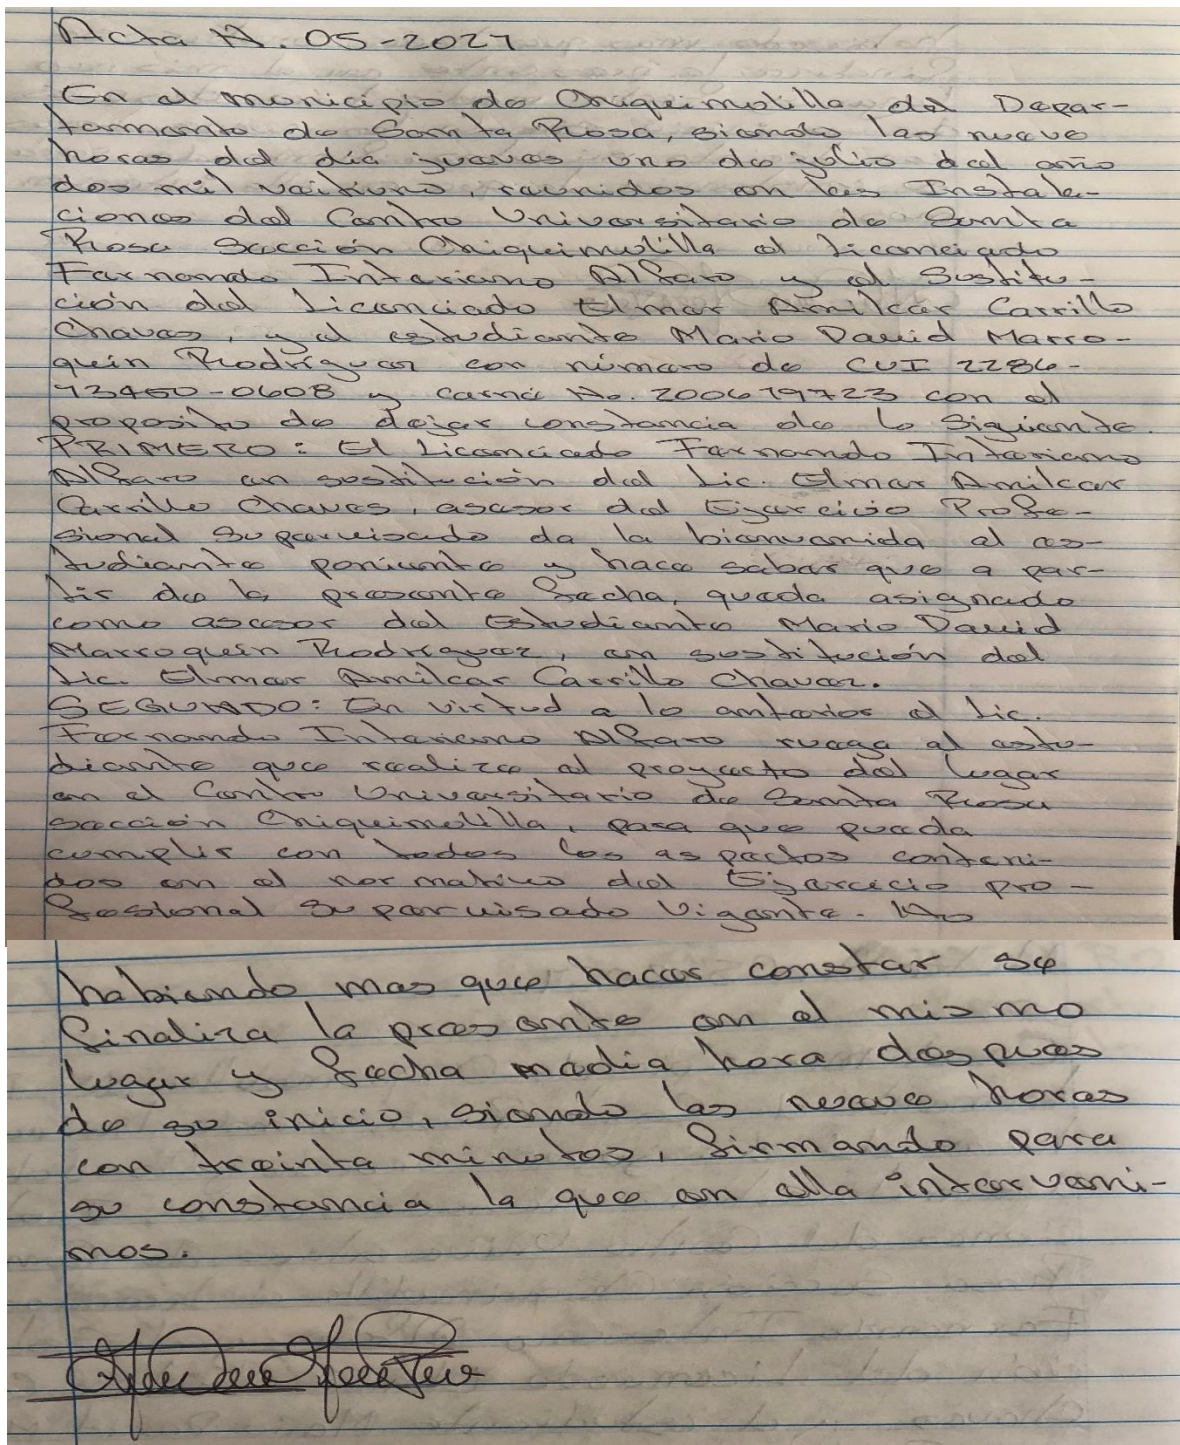 Acta N. 05-2021
En el municipio de Chiquimulilla del Depar-
tamento de Santa Rosa, siendo las nueve
horas del día jueves uno de julio del año
dos mil veitiuno, reunidos en las Instala-
ciones del Centro Universitario de Santa
Rosa Sección Chiquimulilla el Licenciado
Fernando Interiano Alfaro y el Sustitu-
ción del Licenciado Elmer Amilcar Carrillo
Chavez, y el estudiante Mario David Marro-
quin Rodríguez con número de CUI 2286-
93460-0608 y carné No. 200619723 con el
proposito de dejar constancia de lo Siguiente.
PRIMERO: El Licenciado Fernando Interiano
Alfaro en sustitución del Lic. Elmer Amilcar
Carrillo Chaves, asesor del Ejercicio Profe-
sional Supervisado da la bienvenida al es-
tudiante poniente y hace saber que a par-
tir de la presente fecha, queda asignado
como asesor del Estudiante Mario David
Marroquin Rodríguez, en sustitución del
Lic. Elmer Amilcar Carrillo Chavez.
SEGUNDO: En virtud a lo anterior el Lic.
Fernando Interiano Alfaro ruega al estu-
diante que realice el proyecto del lugar
en el Centro Universitario de Santa Rosa
sección Chiquimulilla, para que pueda
cumplir con todos los aspectos conteni-
dos en el normativo del Ejercicio pro-
fesional Supervisado Vigente. No
habiendo mas que hacer constar se
finaliza la presente en el mismo
lugar y fecha media hora despues
de su inicio, siendo las nueve horas
con treinta minutos, firmando para
su constancia la que en ella interveni-
mos.